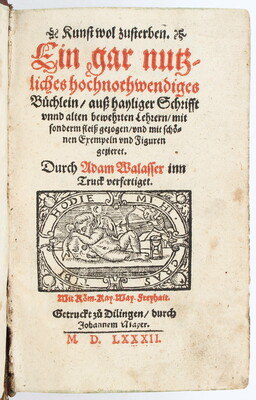 Kunst wol zusterben.
Ein gar nutz-
liches hochnothwendiges
Büchlein / auß hayliger Schrifft
vnnd alten bewehrten Lehrern / mit
sonderm fleiß gezogen / vnd mit schö-
nen Exempeln vnd Figuren
gezieret.
Durch Adam Walasser inn
Truck verfertiget.
HODIE MIHI
CRAS TIBI
Mit Röm. Kay. May. Freyhait.
Getruckt zů Dilingen / durch
Johannem Mayer.
M D. LXXXII.